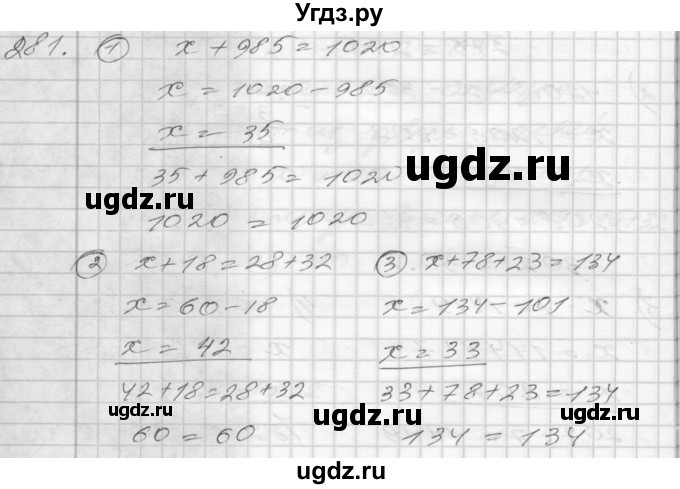 Угдз.ру
281. 1 x + 985 = 1020
x = 1020 - 985
x = 35
35 + 985 = 1020
1020 = 1020
ugdz.ru
ugdz.ru
ugdz.ru
2 x + 18 = 28 + 32
x = 60 - 18
x = 42
42 + 18 = 28 + 32
60 = 60
3 x + 78 + 23 = 134
x = 134 - 101
x = 33
33 + 78 + 23 = 134
134 = 134
ugdz.ru
ugdz.ru
ugdz.ru
ugdz.ru